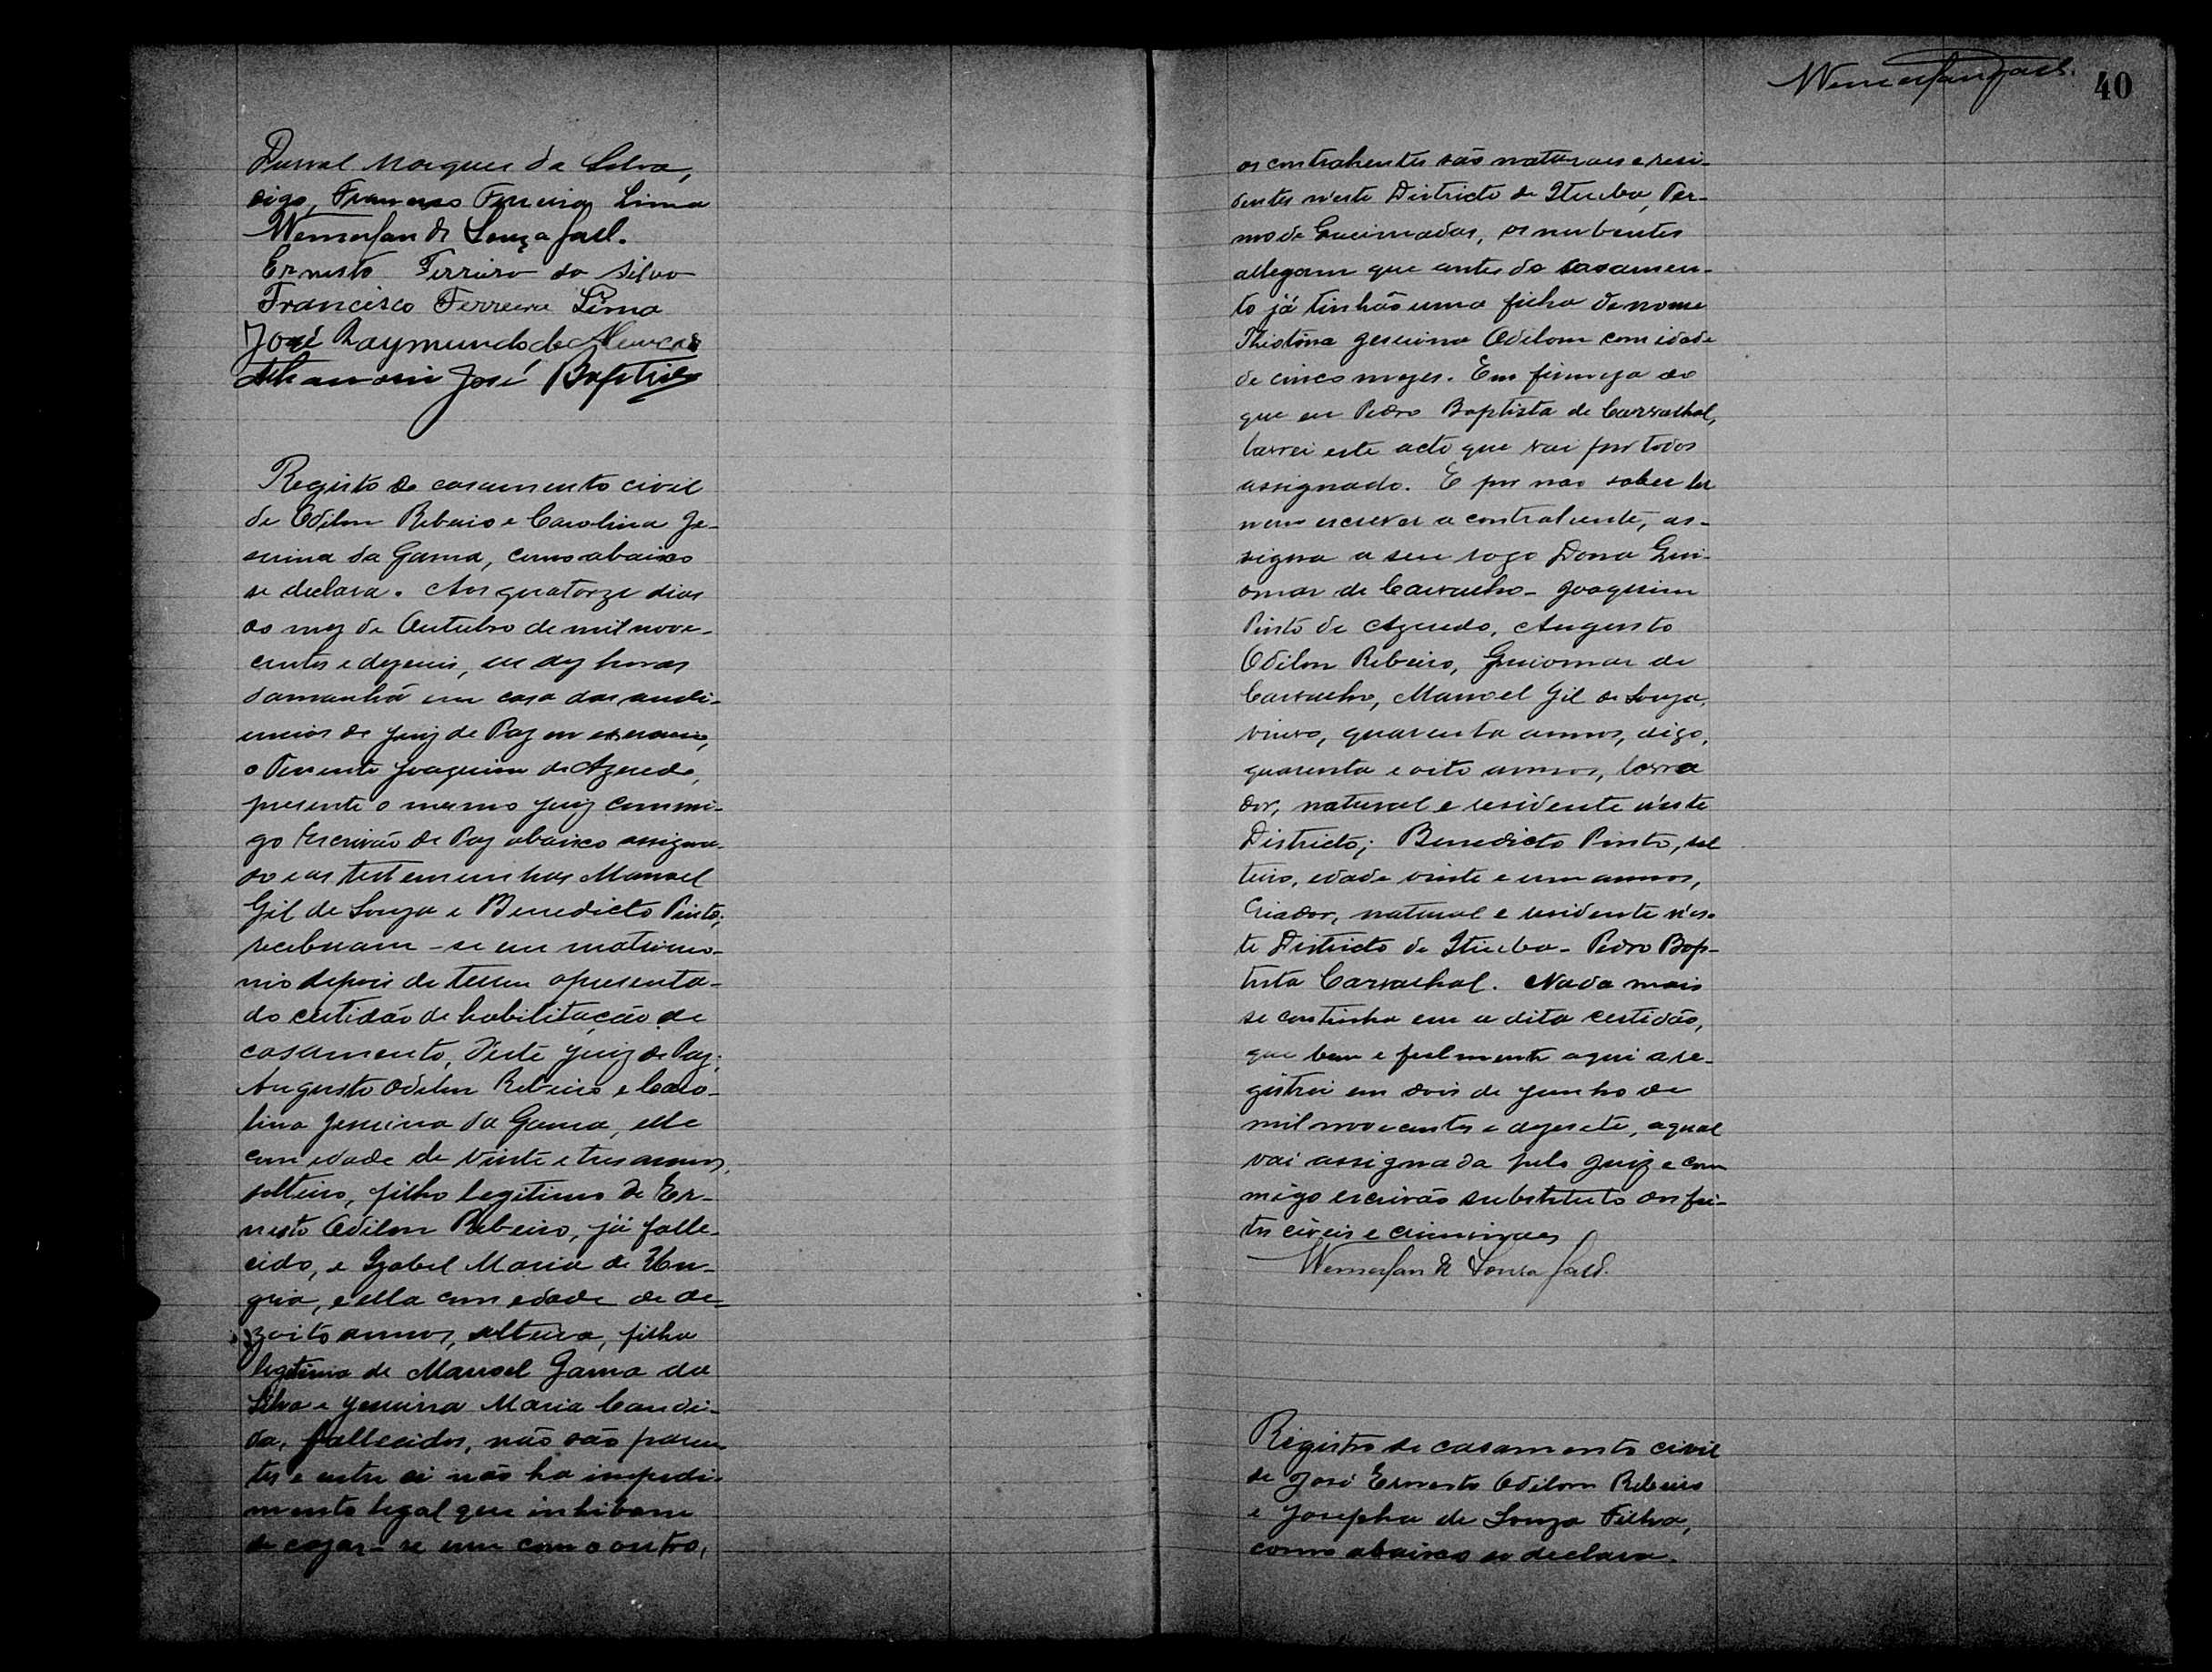 Durval Marques da Silva,
digo, Francisco Ferreira Lima
de Souza
Ernesto Ferreira da Silva
Francisco Ferreira Lima
José Raymundo de
José Baptista
Registo de casamento civil
de Odilon Ribeiro e Carolina Je-
suina da Gama, como abaixo
se declara. Aos quatorze dias
do mez de Outubro de mil nove-
centos e dezeseis, as dez horas
da manhã em casa das audi-
encias do Juiz de Paz em exercicio,
o Tenente Joaquim de Azeredo,
presente o mesmo Juiz commi-
go Escrivão de Paz abaixo assigna-
do e as testemunhas Manoel
Gil de Souza e Benedicto Pinto,
receberam-se em matrimo-
nio depois de terem apresenta-
do certidão de habilitação de
casamento, d'este Juiz de Paz;
Augusto Odilon Ribeiro e Caro-
lina Jesuina da Gama, elle
com edade de vinte e tres annos,
solteiro, filho legitimo de Er-
nesto Odilon Ribeiro, já falle-
cido, e Izabel Maria de Hun-
gria, e ella com edade de de-
zoito annos, solteira, filha
legitima de Manoel Gama da
Silva e Jesuina Maria Candi-
da, fallecidos, não são paren-
tes e entre si não ha impedi-
mento legal que inhibam
de cazar-se um com o outro,
40
os contrahentes são naturaes e resi-
dentes n'este Districto de Itiuba, Ter-
mo de Queimadas, os nubentes
allegam que antes do casamen-
to já tinhão uma filha de nome
Jesuina Odilon com idade
de cinco mezes. Em firmeza do
que eu Pedro Baptista de Carvalhal,
lavrei este acto que vai por todos
assignado. E por não saber ler
nem escrever a contrahente, as-
signa a seu rogo Dona Gui-
omar de Carvalho - Joaquim
Pinto de Azeredo, Augusto
Odilon Ribeiro, Guiomar de
Carvalho, Manoel Gil de Souza,
viuvo, quarenta annos, digo,
quarenta e oito annos, lavra
dor, natural e residente n'este
Districto; Benedicto Pinto, sol
teiro, edade vinte e um annos,
Criador, natural e residente n'es-
te Districto de Itiuba - Pedro Bap-
tista Carvalhal. Nada mais
se continha em a dita certidão,
que bem e fielmente aqui a re-
gistrei em dois de junho de
mil novecentos e dezesete, a qual
vai assignada pelo Juiz e com
migo escrivão substituto dos fei-
tos civeis e criminaes
de Souza
Registro de casamento civil
de José Ernesto Odilon Ribeiro
e Josepha de Souza Filha,
como abaixo se declara.